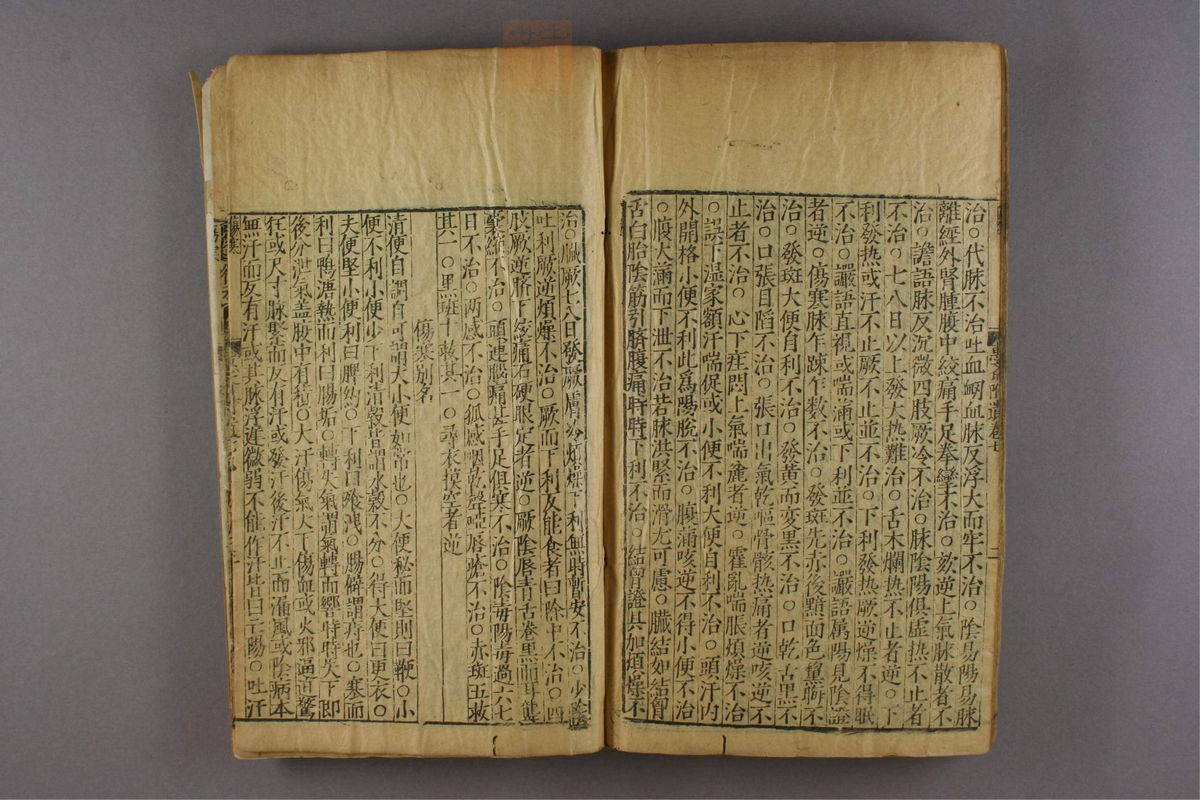 治○代脉不治吐血衂血脉反浮大而牢不治○陰易陽易脉
離經外腎腫腹中絞痛手足拳攣不治○欬逆上氣脉散者不
治○譫語脉反沉微四肢厥冷不治○脉陰陽俱虛热不止者
不治○七八日以上發大热難治○舌木爛热不止者逆○下
利發热或汗不止厥不止並不治○下利發热厥逆燥不得眠
不治○讝語直視或喘滿或下利並不治○讝語属陽見陰證
者逆○傷寒脉乍踈乍数不治○發斑先赤後黯面色黧晦不
治○發斑大便自利不治○發黄而変黒不治○口乾舌黒不
治○口張目陷不治○張口出氣乾嘔骨骸热痛者逆咳逆不
止者不治○心下痓悶上氣喘麄者逆○霍亂喘脹煩燥不治
○誤下湿家額汗喘促或小便不利大便自利不治○頭汗内
外關格小便不利此爲陽脫不治○腹滿咳逆不得小便不治
○腹大滿而下泄不治若脉洪緊而滑尤可慮○臟結如結胷
舌白胎陰筋引臍腹痛時時下利不治○結胷證具加煩燥不
治○臟厥七八日發厥膚冷煩燥下利無時暫安不治○少陰
吐利厥逆煩燥不治○厥而下利反能食者曰除中不治○四
肢厥逆臍下絞痛石硬眼定者逆○厥陰唇青舌卷黒而耳聾
囊縮不治○頭連腦痛甚手足俱寒不治○陰毒陽毒過六七
日不治○两感不治○狐惑咽乾聲啞唇瘡不治○赤斑五救
其一○黒斑十救其一○尋衣摸空者逆
傷寒別名
清便自調自可謂大小便如常也○大便秘而堅則曰鞕○小
便不利小便少下利清穀皆謂水穀不分○得大便曰更衣○
夫便堅小便利曰脾約○下利曰飱洩○腸僻謂痔也○寒而
利曰鴨溏熱而利曰腸垢○轉失氣謂氣轉而響時時失下即
後分泄氣盖腹中有積○大汗傷氣大下傷血或火邪逼迫驚
狂或尺寸脉緊而反有汗或發汗後汗不止而漏風或陰病本
無汗而反有汗或其脉浮遲微弱不能作汗皆曰亡陽○吐汗